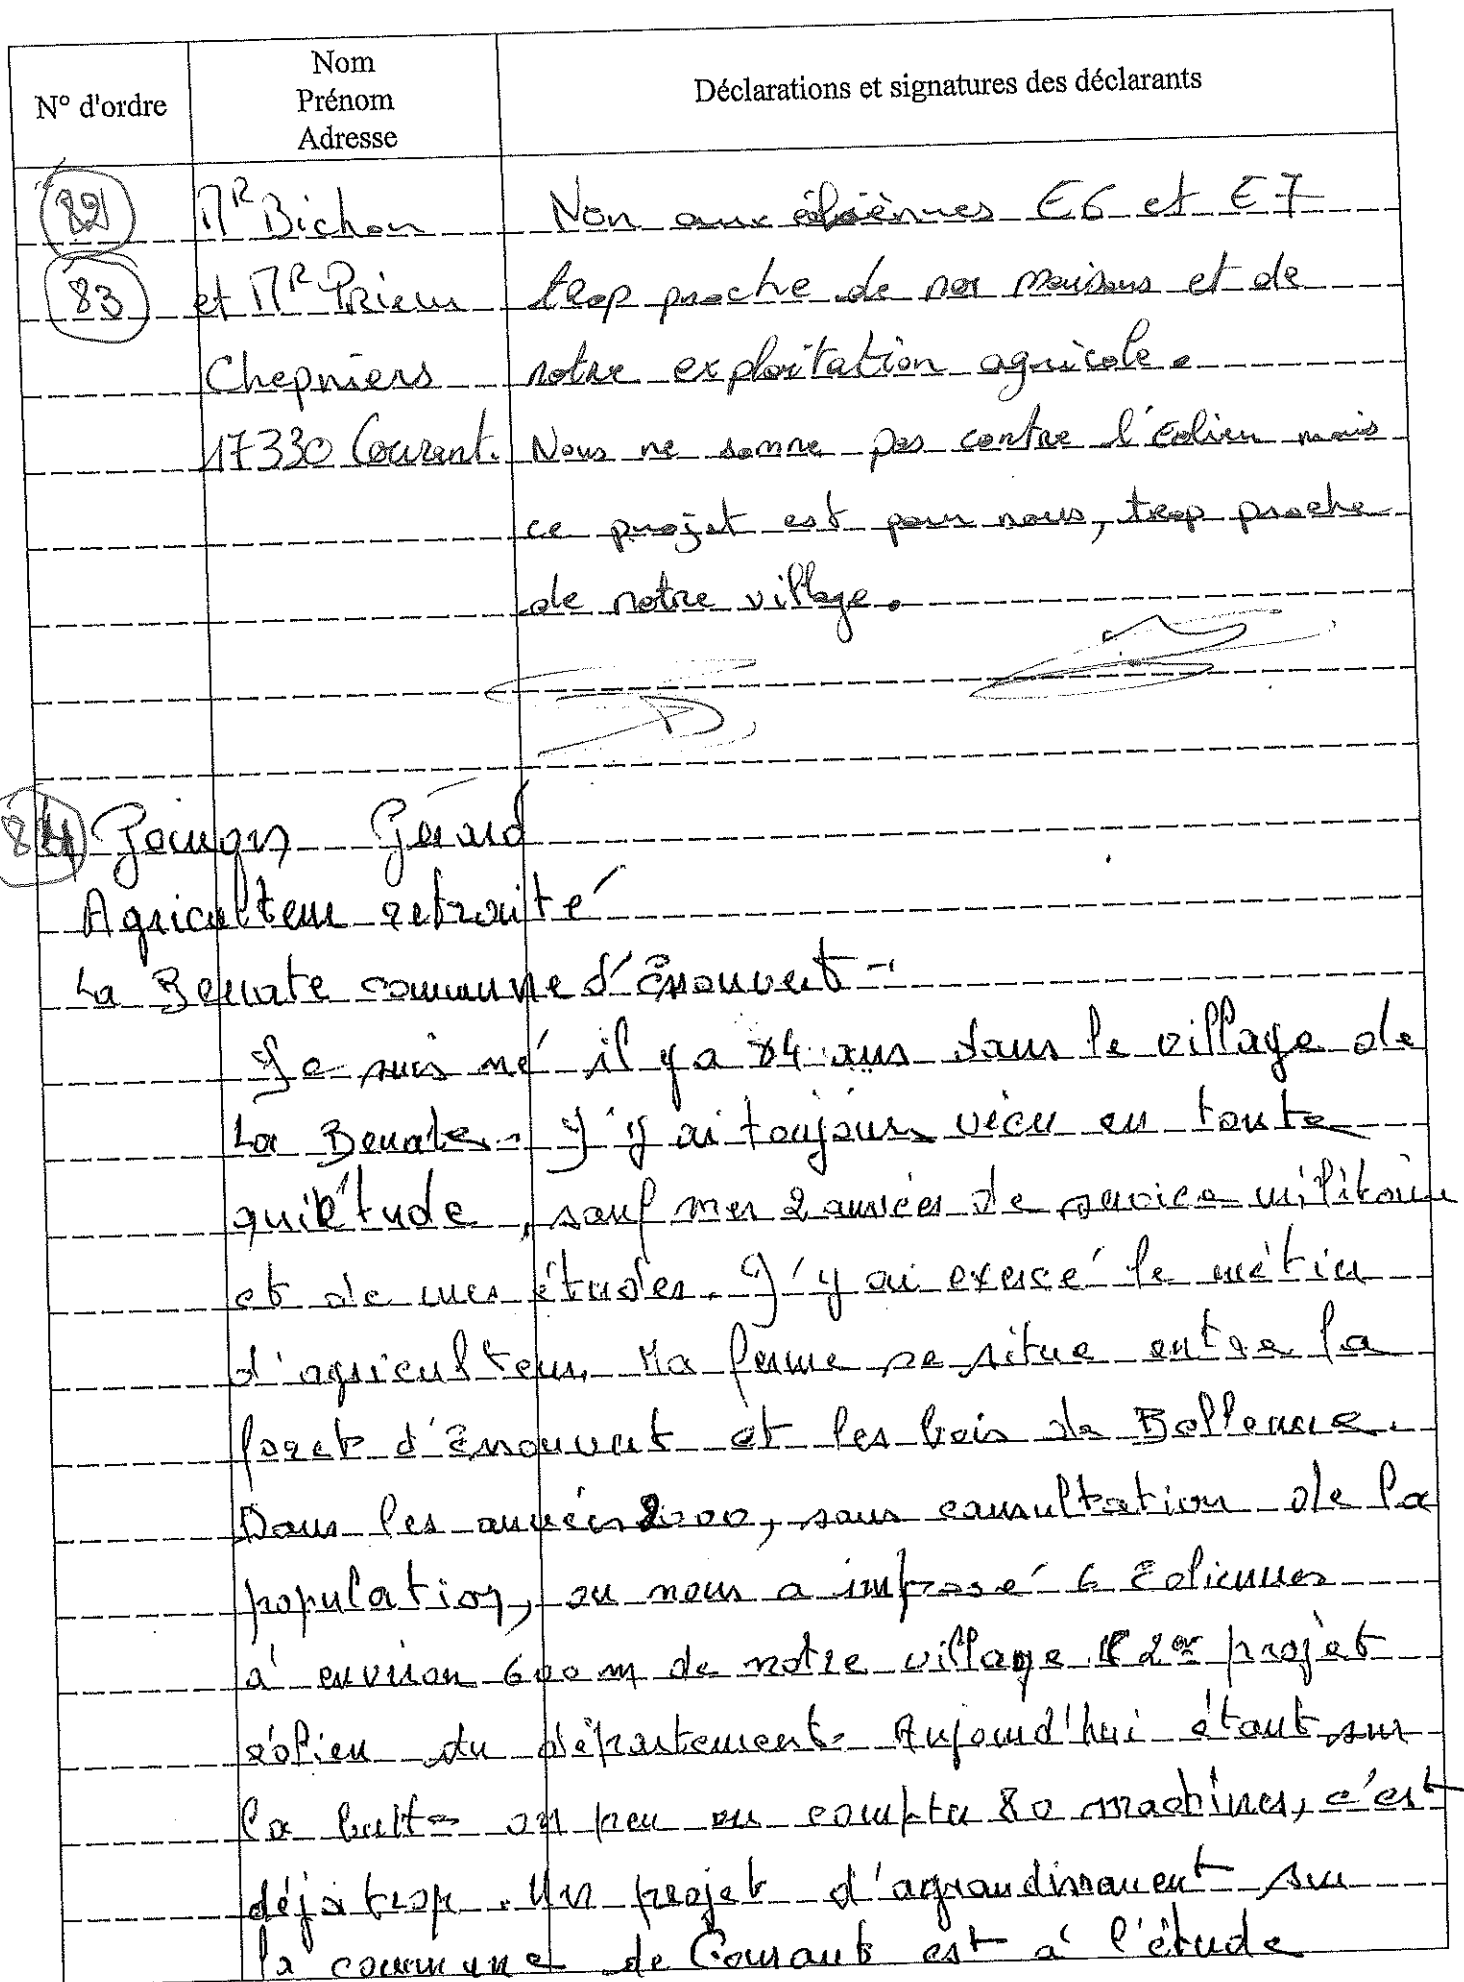 N° d'ordre
Nom
Prénom
Adresse
Déclarations et signatures des déclarants
82 Mr Bichon Non aux éoliènnes E6 et E7
83 et Mr Prieur trop proche de nos maisons et de
Chepniers notre exploitation agricole.
17330 Courant. Nous ne somme pas contre l'Eolien mais
ce projet est pour nous, trop proche
de notre village.
84 Gérard
Agriculteur retraité
La Benate commune d'Essouvert -
Je suis né il y a ans dans le village de
La Benate. J'y ai toujours vécu en toute
quiétude, sauf mes 2 années de service militaire
et de mes études. J'y ai exercé le métier
d'agriculteur. Ma ferme se situe entre la
foret d'Essouvert et les bois de
Dans les années 2000, sans consultation de la
population, on nous a imposé 6 Eoliennes
à environ 600 m de notre village 2em projet
éolien du département. Aujourd'hui étant sur
la butte on peu en compter 80 machines, c'est
déjà trop. Un projet d'agrandissement sur
la commune de Courant est à l'étude